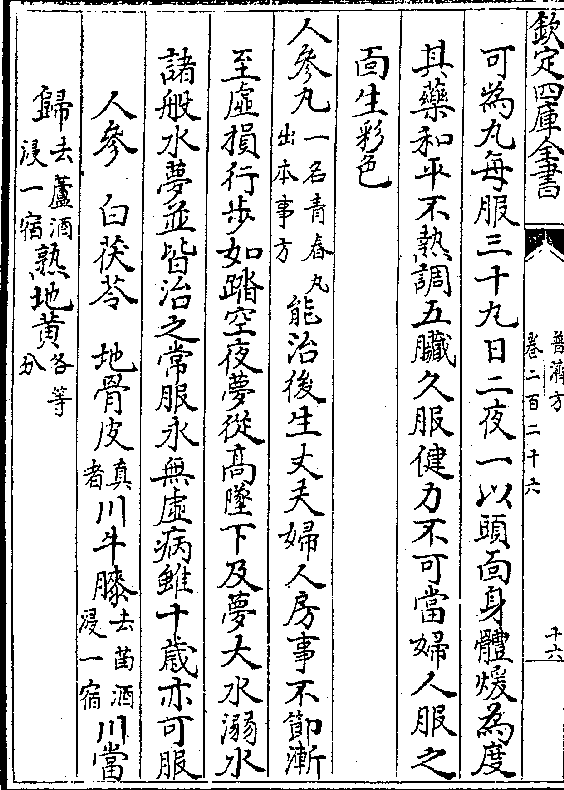 欽定四庫全書
普濟方
卷二百二十六
十六
可為丸每服三十九日二夜一以頭面身體煖為度
其藥和平不熱調五臟久服健力不可當婦人服之
面生彩色
人參丸一名青春丸出本事方 能治後生丈夫婦人房事不節漸
至虛損行步如踏空夜夢從高墜下及夢大水溺水
諸般水夢並皆治之常服永無虛病雖十歲亦可服
人參 白茯苓 地骨皮真者 川牛膝去苗酒浸一宿 川當
歸去蘆酒浸一宿 熟地黄各等分